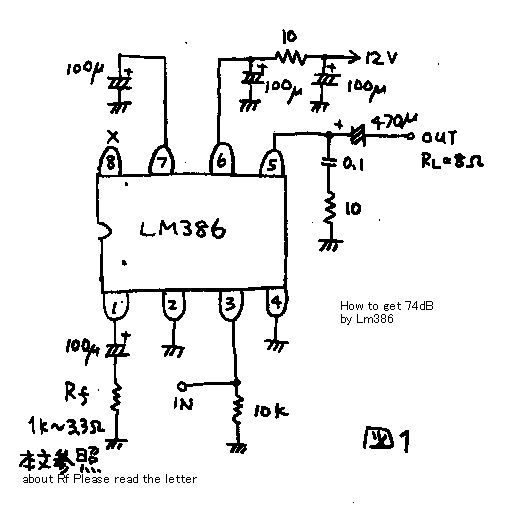 10
12V
100μ +
+ 100μ
+ 100μ
+ 470μ
OUT
RL=8Ω
0.1
10
X
8 7 6 5
LM386
1 2 3 4
How to get 74dB
by Lm386
100μ +
Rf
1k~33Ω
本文参照
IN
10k
図1
about Rf Please read the letter